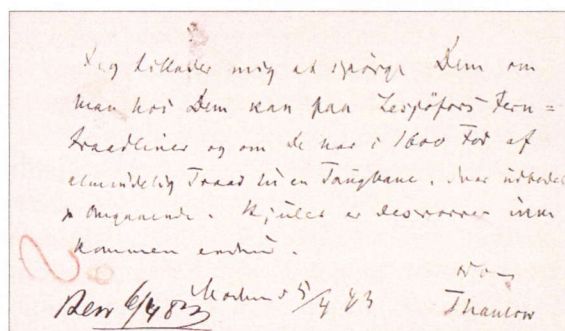 Jeg tillader mig at spörge Dem om
man hos Dem kan faa Lesjöfors Jern=
traadliner og om De har i 1600 Fod af
almindelig Traad til en Taugbane. Svar udbedes
omgaaende. Hjulet er desværre ikke
kommen endnu.
Thaulow